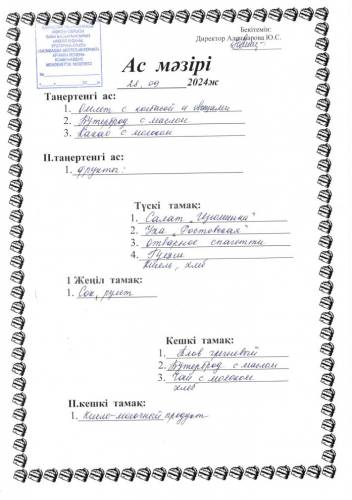 Бекітемін:
Директор Ю.С.
Ас мәзірі
28. 09 2024ж
Таңертеңгі ас:
1. Омлет с колбасой и овощами
2. Бутерброд с маслом
3. Какао с молоком
II.таңертеңгі ас:
1. фрукты:
Түскі тамақ:
1. Салат "Изюминка"
2. Уха "Ростовская"
3. отварное спагетти
4. Гуляш
Кисель, хлеб
1 Жеңіл тамақ:
1. Сок, рулет
Кешкі тамақ:
1. Плов гречневый
2. Бутерброд с маслом
3. Чай с молоком
хлеб
II.кешкі тамақ:
1. Кисло-молочный продукт